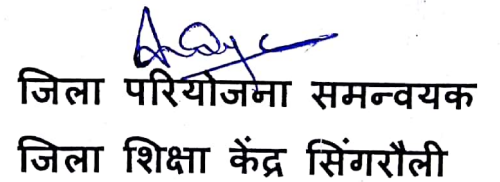 जिला परियोजना समन्वयक
जिला शिक्षा केंद्र सिंगरौली